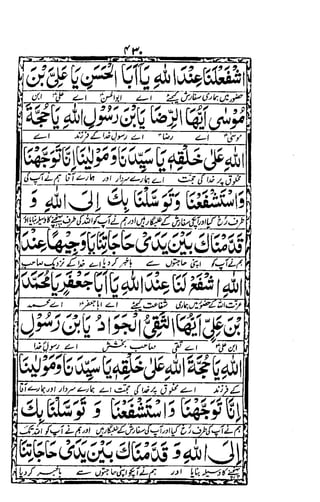 ۴۳۰
اشْفَعْ لَنَا عِنْدَ اللهِ يَا اَبَا الْحَسَنِ يَا عَلِىَّ بْنَ
حضور میں ہماری سفارش کیجئے اے ابوالحسنؑ اے علیؑ ابن
مُوْسٰى اَيُّهَا الرِّضَا يَا بْنَ رَسُوْلِ اللهِ يَا حُجَّةَ
موسیٰؑ اے رضاؑ اے رسولِ خدا کے فرزند اے
اللهِ عَلٰى خَلْقِهٖ يَا سَيِّدَنَا وَمَوْلٰينَا اِنَّا تَوَجَّهْنَا
مخلوق پر خدا کی حجت اے ہمارے سردار اور ہمارے آقا ہم نے آپ کی
وَاسْتَشْفَعْنَا وَتَوَسَّلْنَا بِكَ اِلَى اللهِ وَ
طرف رخ کیا اور آپکی سفارش کے طلبگار ہیں اور ہم نے آپ کو اللہ کی طرف پہنچنے کا وسیلہ بنایا اور
قَدَّمْنَاكَ بَيْنَ يَدَىْ حَاجَاتِنَا يَا وَجِيْهًا عِنْدَ
ہم نے آپ کو اپنی حاجتوں سے باخبر کر دیا اے خدا کے نزدیک صاحب
اللهِ اشْفَعْ لَنَا عِنْدَ اللهِ يَا اَبَا جَعْفَرٍ يَا مُحَمَّدَ
عزت اللہ کے حضور میں ہماری شفاعت کیجئے اے ابا جعفرؑ اے محمد
بْنَ عَلِىٍّ اَيُّهَا التَّقِىُّ الْجَوَادُ يَا بْنَ رَسُوْلِ
ابن علیؑ اے تقی صاحب بخشش اے رسولِ خدا
اللهِ يَا حُجَّةَ اللهِ عَلٰى خَلْقِهٖ يَا سَيِّدَنَا وَمَوْلٰينَا
کے فرزند اے مخلوق پر خدا کی حجت اے ہمارے سردار اور ہمارے آقا
اِنَّا تَوَجَّهْنَا وَاسْتَشْفَعْنَا وَ تَوَسَّلْنَا بِكَ
ہم نے آپ کی طرف رخ کیا اور آپ کی سفارش کے طلبگار ہیں اور ہم نے آپ کو اللہ تک
اِلَى اللهِ وَ قَدَّمْنَاكَ بَيْنَ يَدَىْ حَاجَاتِنَا
پہنچنے کا وسیلہ بنایا اور ہم نے آپکو اپنی حاجتوں سے باخبر کر دیا